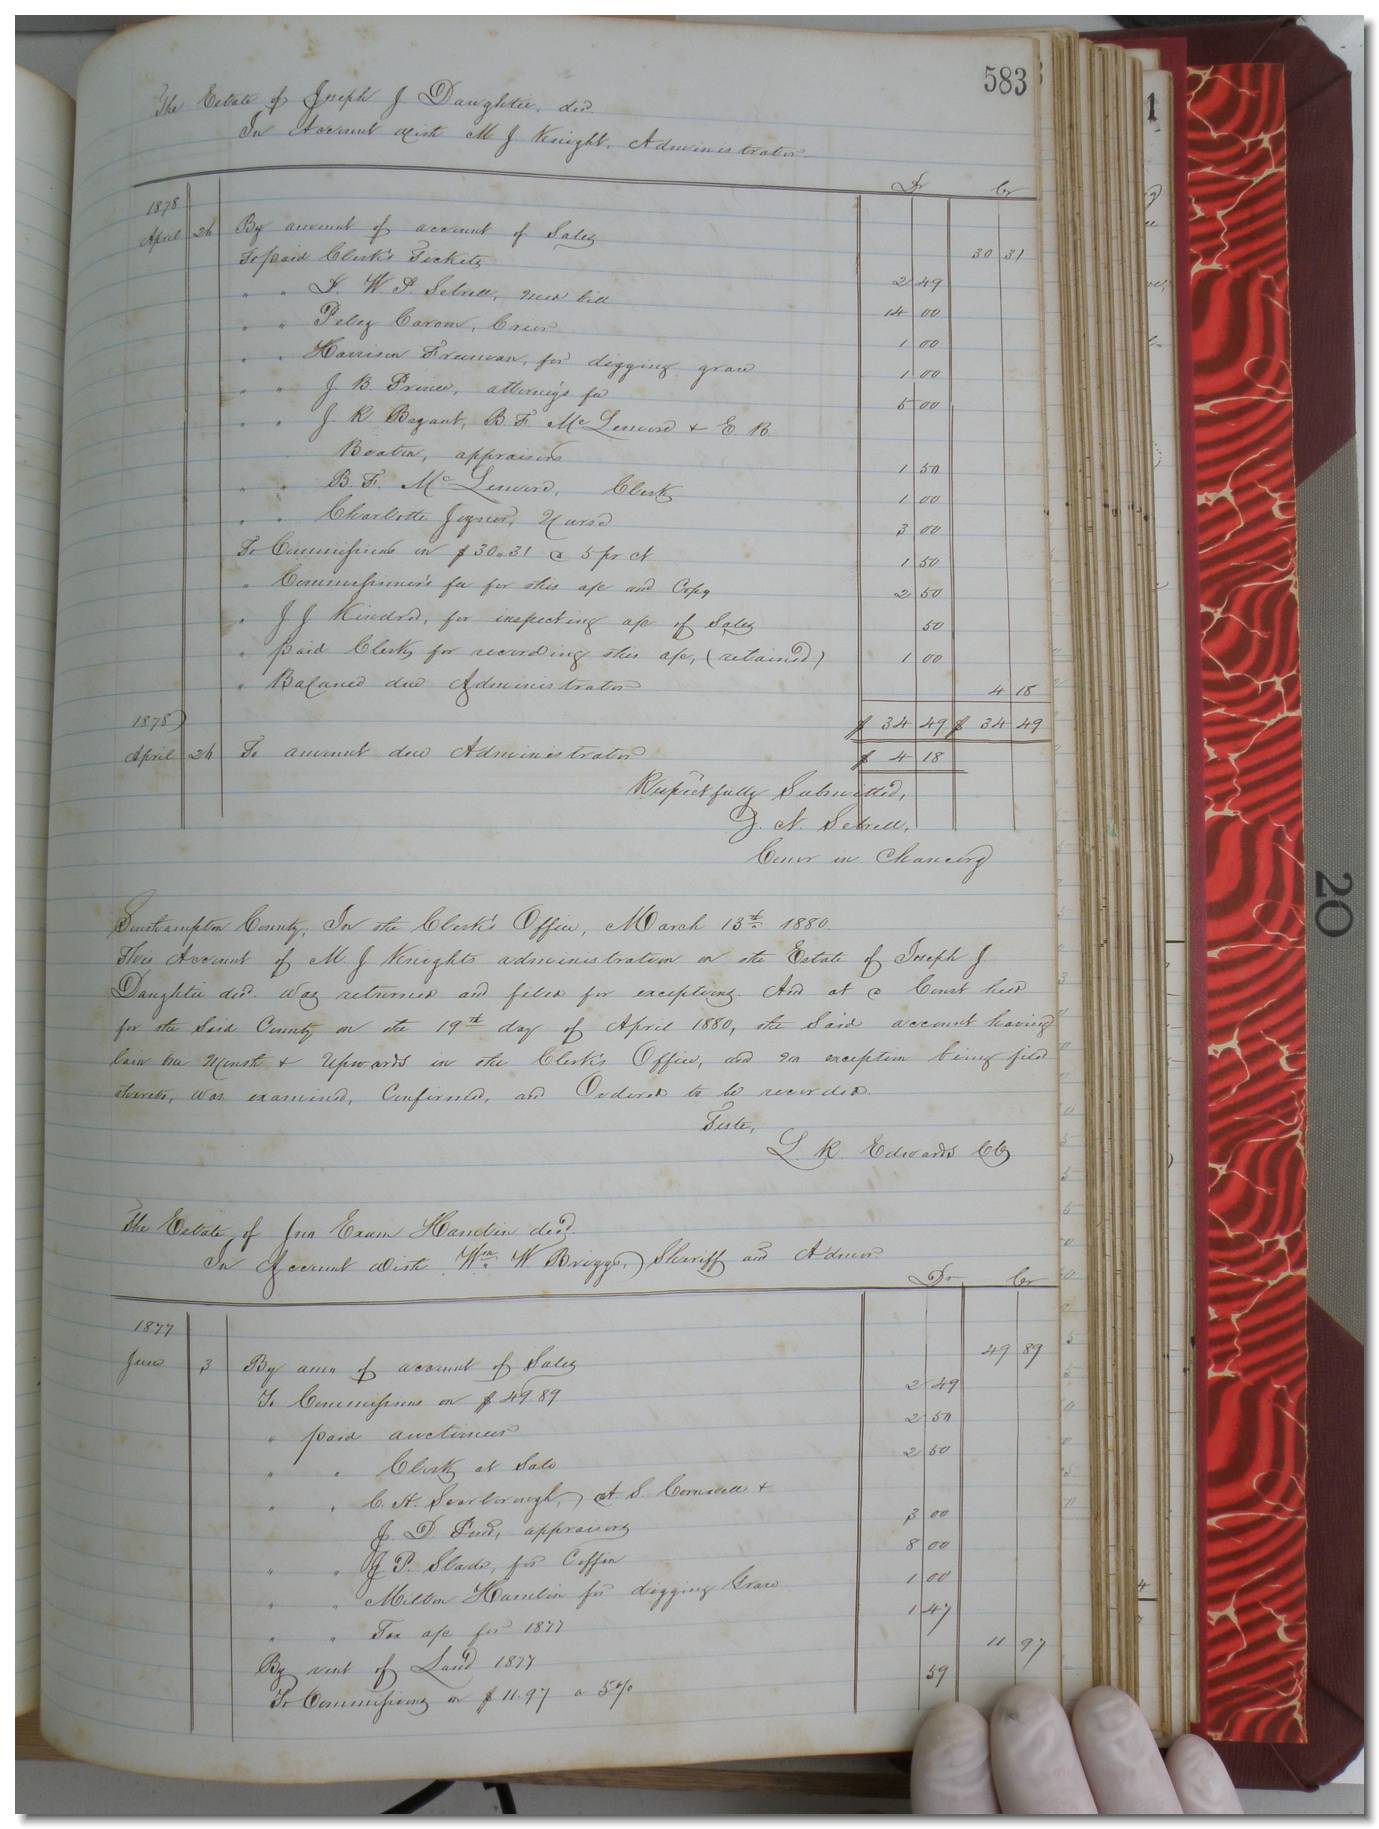 583
The Estate of Joseph J Daughtrie, decd.
In Account with M J Knight, Administrator
Dr Cr
1878
April 26 By amount of account of Sales 30 31
To paid Clerk's Tickets 2 49
" " W P Sebrell, med bill 14 00
" " Peleg Carow, Crier 1 00
" " Harrison Freeman, for digging grave 1 00
" " J. B. Prince, attorney's fee 5 00
" " J. R. Bryant, B. F. McLemore & E. B.
Boatin, appraisers 1 50
" " B. F. McLemore, Clerk 1 00
" " Charlotte Joyner, Nurse 3 00
To Commissions on $30.31 @ 5 pr ct 1 50
" Commissioner's fee for this a/c and Copy 2 50
" J J Kindred, for inspecting a/c of Sales 50
" paid Clerk for recording this a/c, (retained) 1 00
" Balance due Administrator 4 18
$ 34 49 $ 34 49
1878
April 26 To amount due Administrator $ 4 18
Respectfully Submitted,
J. N. Sebrell,
Comr in Chancery
Southampton County, In the Clerk's Office, March 13th 1880.
This Account of M. J Knights administration on the Estate of Joseph J
Daughtrie decd. was returned and filed for exceptions. And at a Court held
for the Said County on the 19th day of April 1880, the Said account having
lain one Month & Upwards in the Clerk's Office, and no exception being filed
thereto, was examined, Confirmed, and Ordered to be recorded.
Teste,
L R. Edwards Clk
The Estate of Jno Exum Hamlin decd.
In Account with Wm. W Briggs, Sheriff and Admor
Dr Cr
1877
June 3 By amn of account of Sales 49 89
To Commissions on $49.89 2 49
" paid auctioneer 2 50
" " Clerk at Sale 2 50
" " C. H. Scarborough, A. S. Cornwell &
J. D. Pond, appraisers 3 00
" " J. P. Slade, for Coffin 8 00
" " Milton Hamlin for digging Grave 1 00
" " Tax a/c for 1877 1 47
By rent of Land 1877 11 97
To Commissions on $11.97 @ 5% 59
20
1